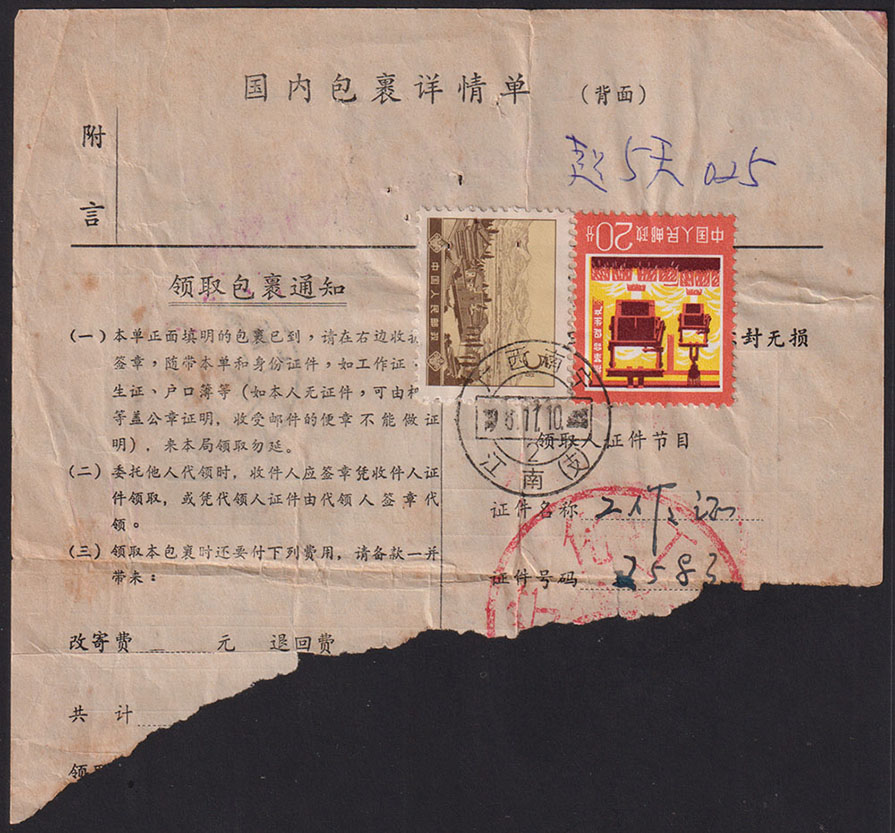 国内包裹详情单 (背面)
附言
超5天 0.25
20分
中国人民邮政
中国人民邮政
领取包裹通知
(一) 本单正面填明的包裹已到，请在右边收
签章，随带本单和身份证件，如工作证，
生证、户口簿等（如本人无证件，可由
等盖公章证明，收受邮件的便章不能做证
明)，来本局领取勿延。
(二) 委托他人代领时，收件人应签章凭收件人证
件领取，或凭代领人证件由代领人签章代
领。
(三) 领取本包裹时还要付下列费用，请备款一并
带来：
改寄费 元 退回费
共计
领取
封无损
广西南宁
8.11.10
2
江南(支)
领取人证件节目
证件名称 工作证
证件号码 2583